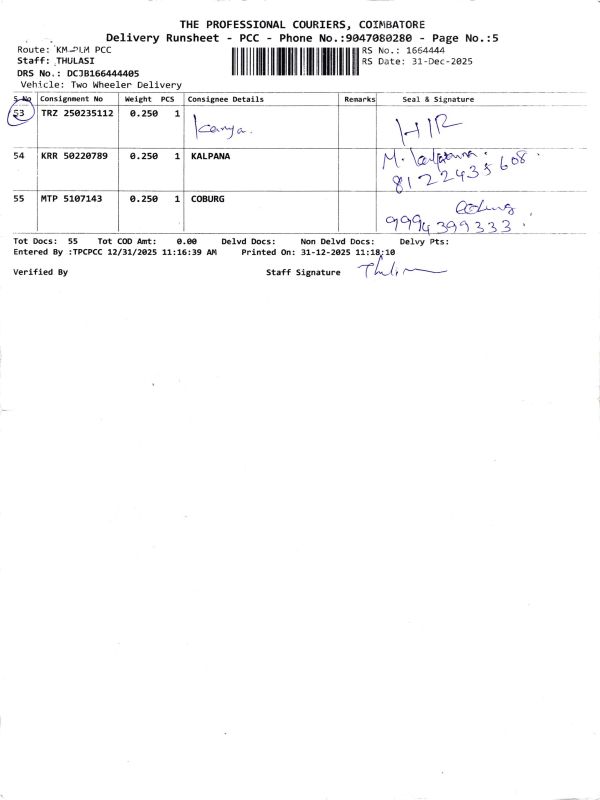 THE PROFESSIONAL COURIERS, COIMBATORE
Delivery Runsheet - PCC - Phone No.:9047080280 - Page No.:5
Route: KM-PLM PCC
RS No.: 1664444
Staff: THULASI
RS Date: 31-Dec-2025
DRS No.: DCJB166444405
Vehicle: Two Wheeler Delivery
S No Consignment No Weight PCS Consignee Details Remarks Seal & Signature
53 TRZ 250235112 0.250 1 Kanya. HIR
54 KRR 50220789 0.250 1 KALPANA M. Kalpana.
8122435608.
55 MTP 5107143 0.250 1 COBURG Coburg
9994399333.
Tot Docs: 55 Tot COD Amt: 0.00 Delvd Docs: Non Delvd Docs: Delvy Pts:
Entered By :TPCPCC 12/31/2025 11:16:39 AM Printed On: 31-12-2025 11:18:10
Verified By Staff Signature